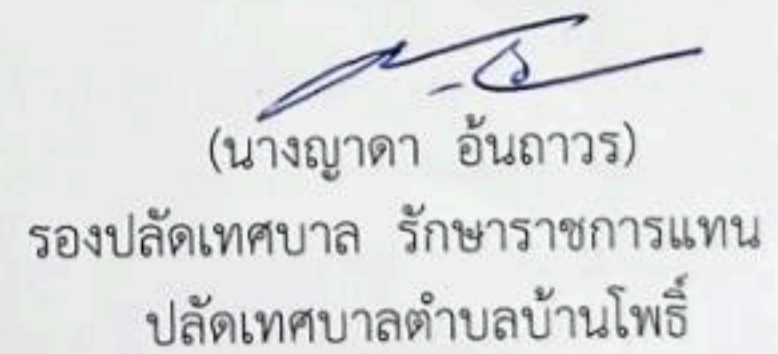 (นางญาดา อ้นถาวร)
รองปลัดเทศบาล รักษาราชการแทน
ปลัดเทศบาลตำบลบ้านโพธิ์